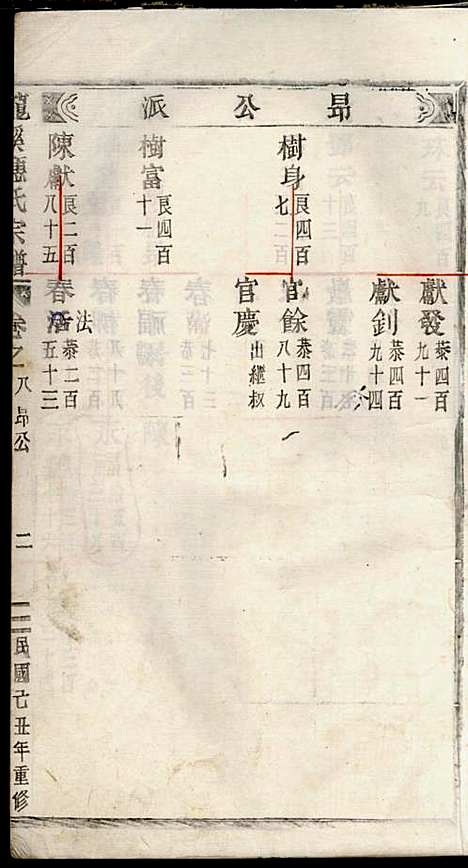 昂公派
獻發 恭四百九十一
獻釗 恭四百九十四
樹身 良四百七
官餘 恭四百八十九
官慶 出繼叔
樹富 良四百十一
陳獻 良二百八十五
春活 法 恭二百五十三
龍溪應氏宗譜
卷之八 昂公
二
民國己丑年重修